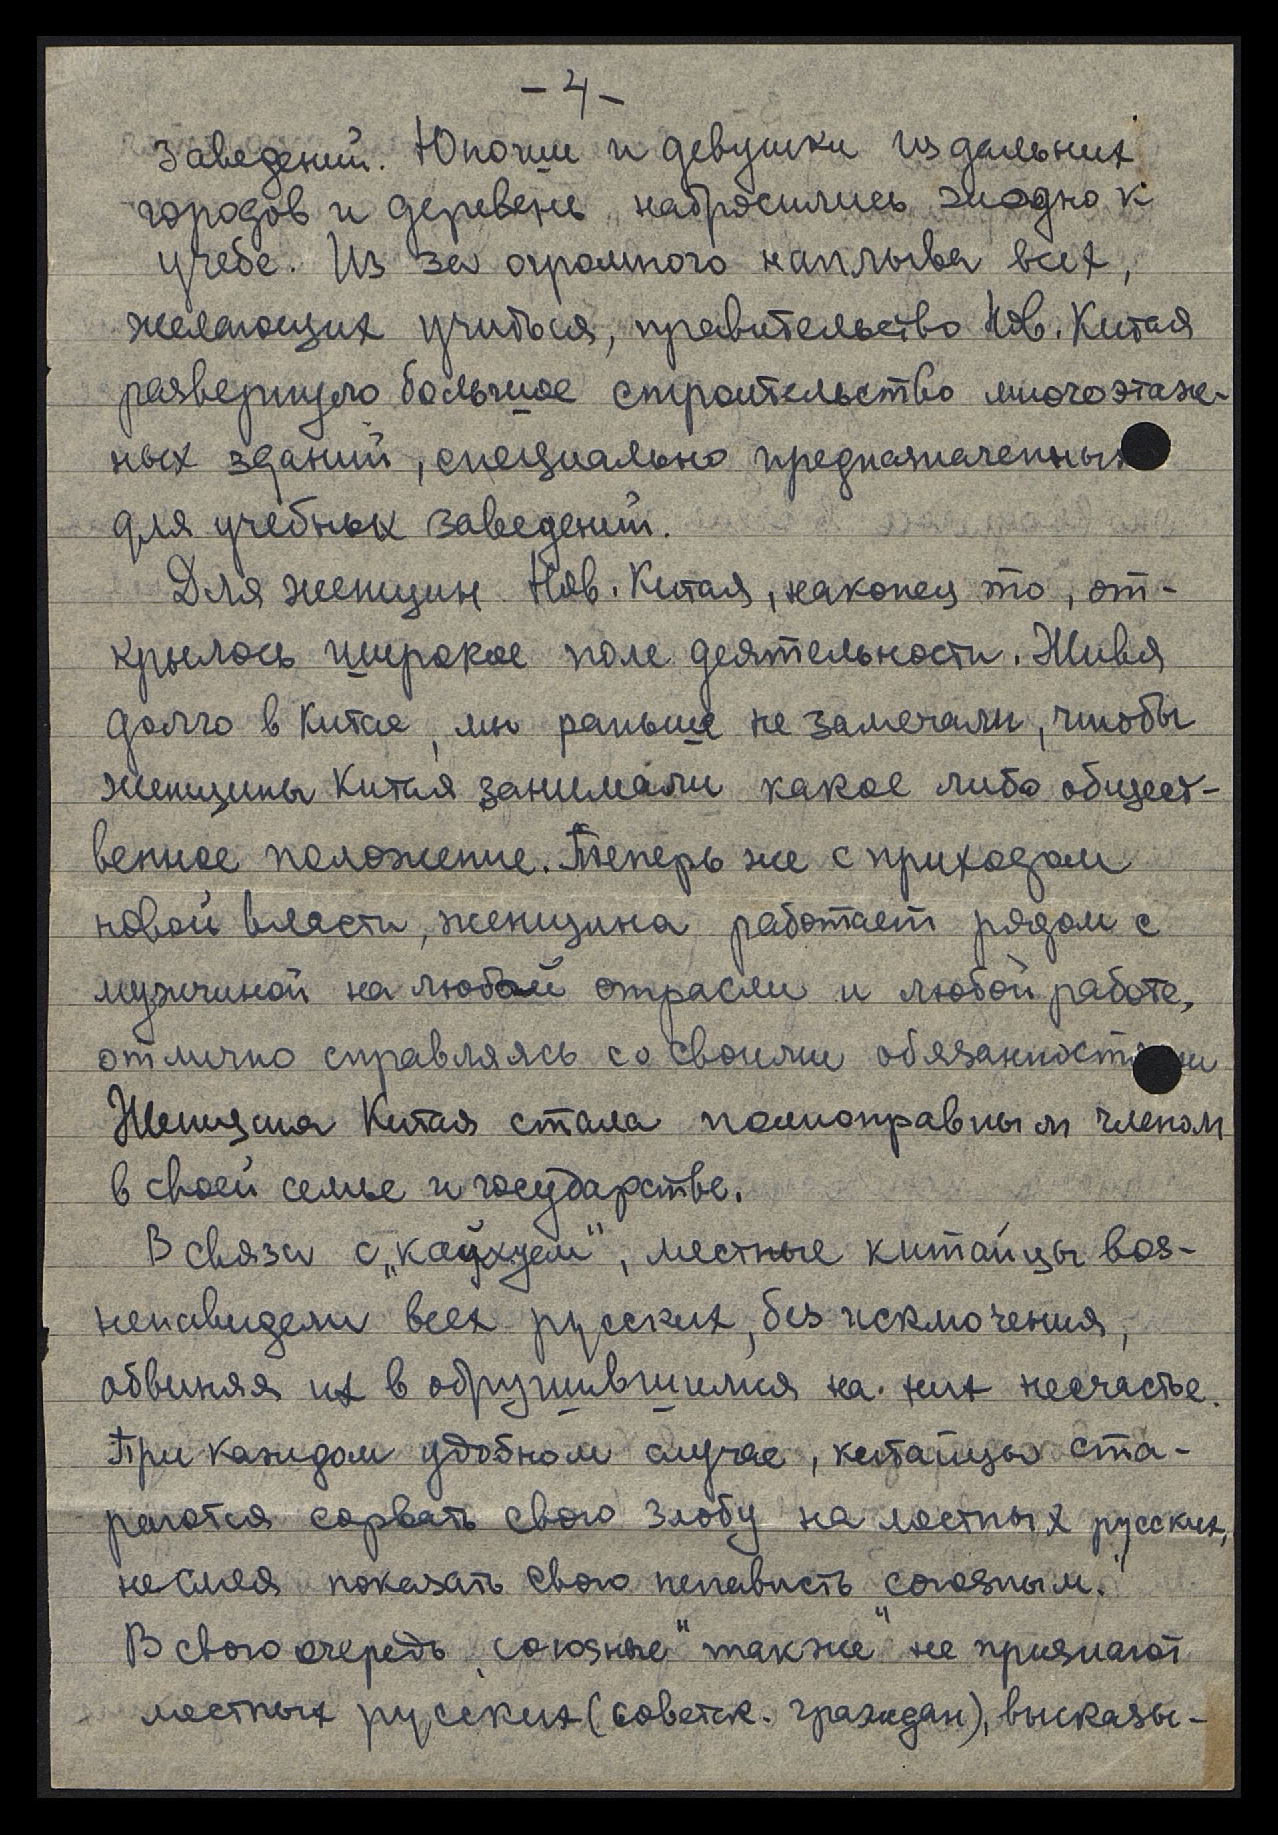 - 4 -
заведений. Юноши и девушки из дальних
городов и деревень набросились жадно к
учебе. Из за огромного наплыва всех,
желающих учиться, правительство Нов. Китая
развернуло большое строительство многоэтаж-
ных зданий, специально предназначенных
для учебных заведений.
Для женщин Нов. Китая, наконец то, от-
крылось широкое поле деятельности. Живя
долго в Китае, мы раньше не замечали, чтобы
женщины Китая занимали какое либо общест-
венное положение. Теперь же с приходом
новой власти, женщина работает рядом с
мужчиной на любой отрасли и любой работе,
отлично справляясь со своими обязанностями
Женщина Китая стала полноправным членом
в своей семье и государстве.
В связи с „кайхуем", местные китайцы воз-
ненавидели всех русских, без исключения,
обвиняя их в обрушившимся на них несчастье.
При каждом удобном случае, китайцы ста-
раются сорвать свою злобу на местных русских,
не смея показать свою ненависть „союзным."
В свою очередь „союзные" также не признают
местных русских (советск. граждан), высказы-